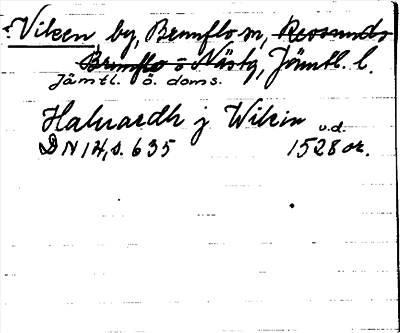 Viken, by, Brunflo sn, Revsunds
Brunflo o Näskz, Jämtl. l.
Jämtl. ö. doms.
Halvardh j Wikin
u.d.
DN 14, s. 635 1528 or.